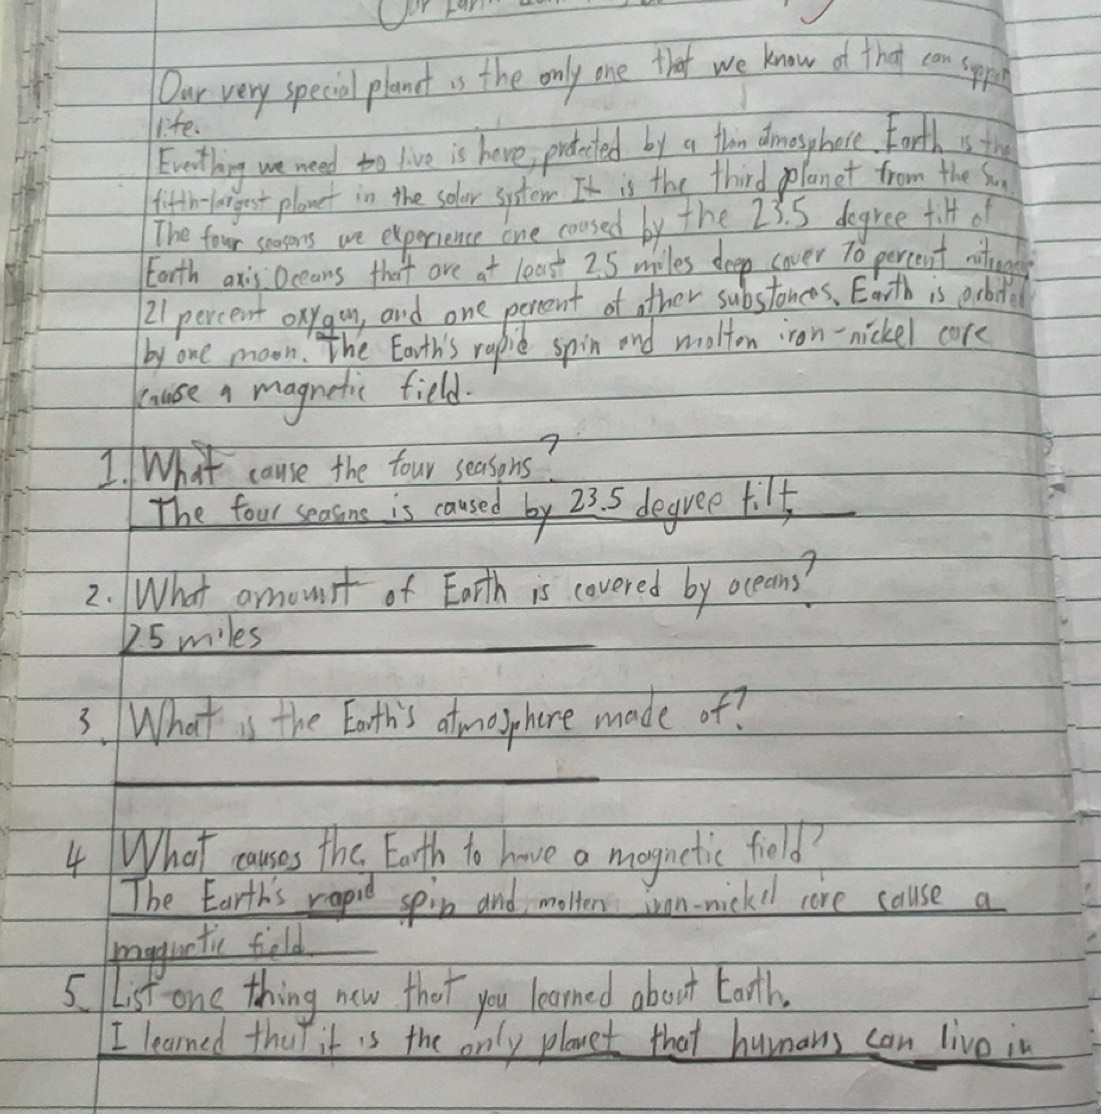 Our
Our very special planet is the only one that we know of that can support
life.
Everthing we need to live is here, protected by a thin atmosphere. Earth is the
fifth-largest planet in the solar system It is the third planet from the Sun.
The four seasons we experience are caused by the 23.5 degree tilt of
Earth axis. Oceans that are at least 2.5 miles deep cover 70 percent nitrogen
21 percent oxygen, and one percent of other substances. Earth is orbited
by one moon. The Earth's rapid spin and molton iron-nickel core
cause a magnetic field.
1. What cause the four seasons?
The four seasons is caused by 23.5 degree tilt
2. What amount of Earth is covered by oceans?
2.5 miles
3. What is the Earth's atmosphere made of?
4 What causes the Earth to have a magnetic field?
The Earth's rapid spin and molten iron-nickel core cause a
magnetic field.
5. List one thing new that you learned about Earth.
I learned that it is the only planet that humans can live in